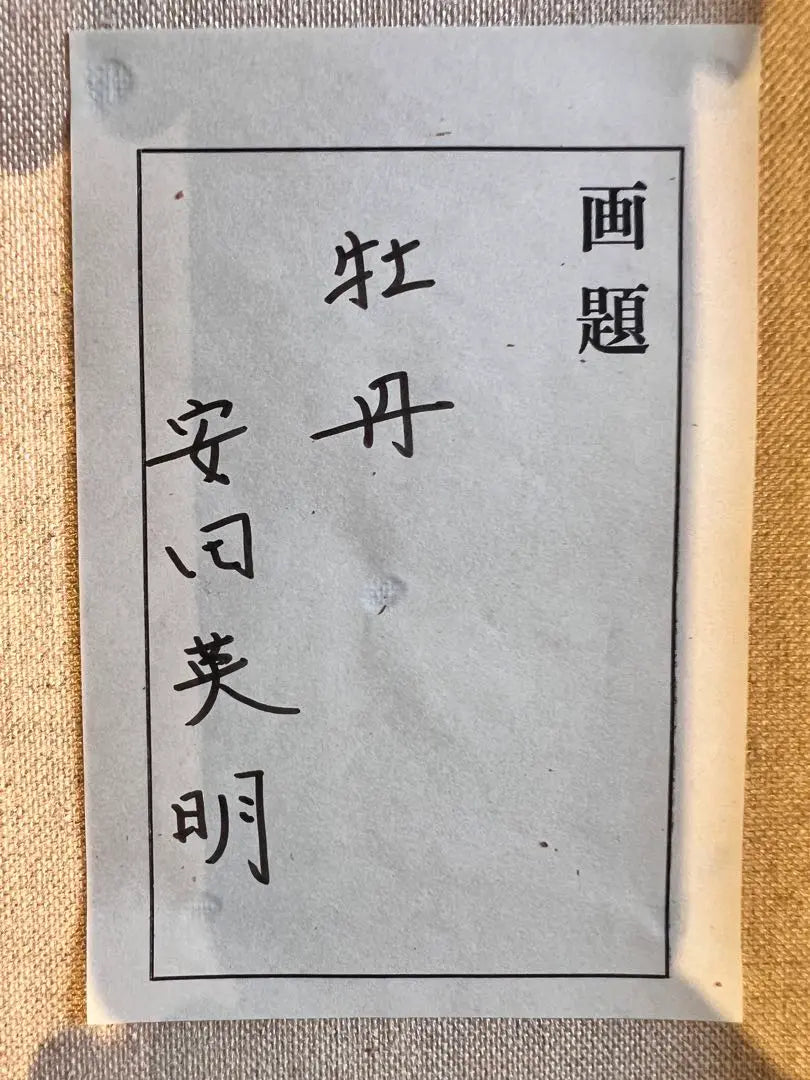 画題
牡丹
安田英明